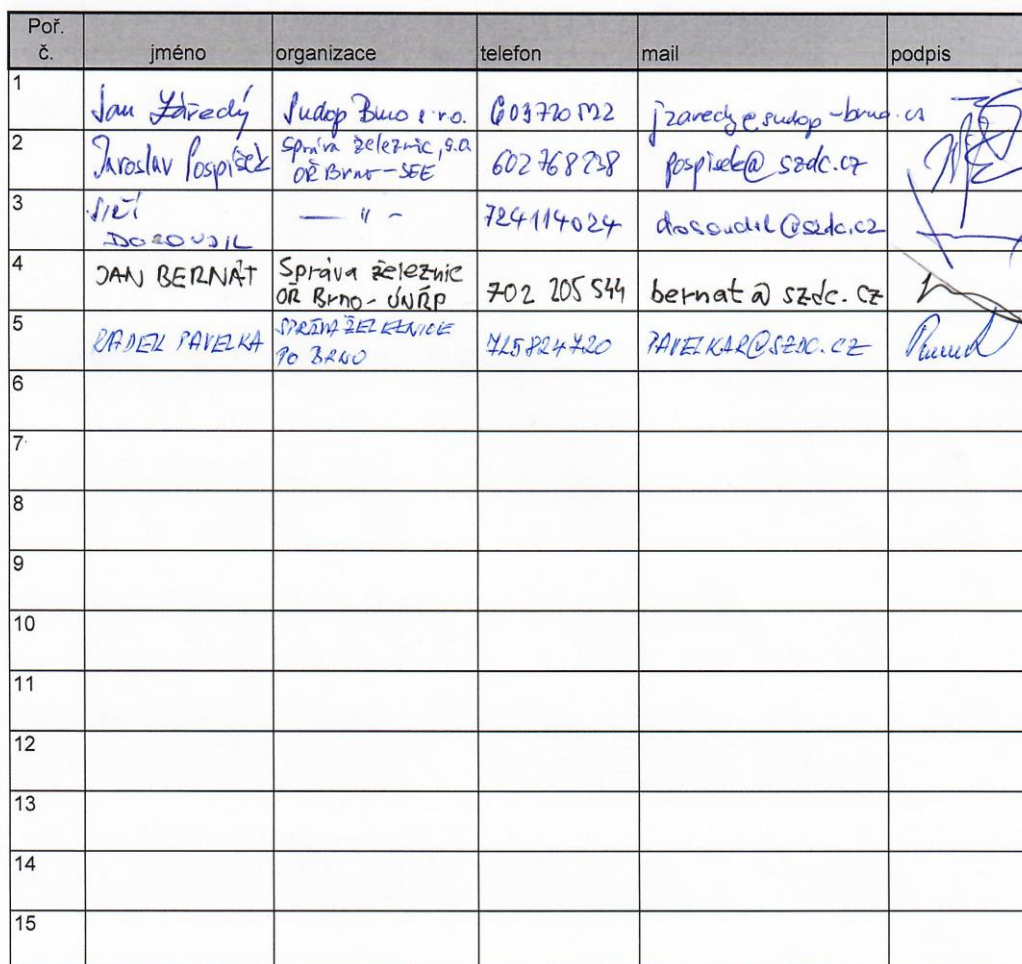 Poř.
č. jméno organizace telefon mail podpis
1 Jan Zářecký Sudop Brno s.r.o. 603720522 jzarecky@sudop-brno.cz
2 Jaroslav Pospíšek Správa železnic, s.o.
OŘ Brno-SEE 602 768 238 pospisek@szdc.cz
3 JIŘÍ
DOSOUDIL — " — 724114024 dosoudil@szdc.cz
4 JAN BERNÁT Správa železnic
OŘ Brno - ÚNŘP 702 205 544 bernat@szdc.cz
5 RADEK PAVELKA SPRÁVA ŽELEZNICE
PO BRNO 725824720 PAVELKAR@SZDC.CZ
6
7
8
9
10
11
12
13
14
15